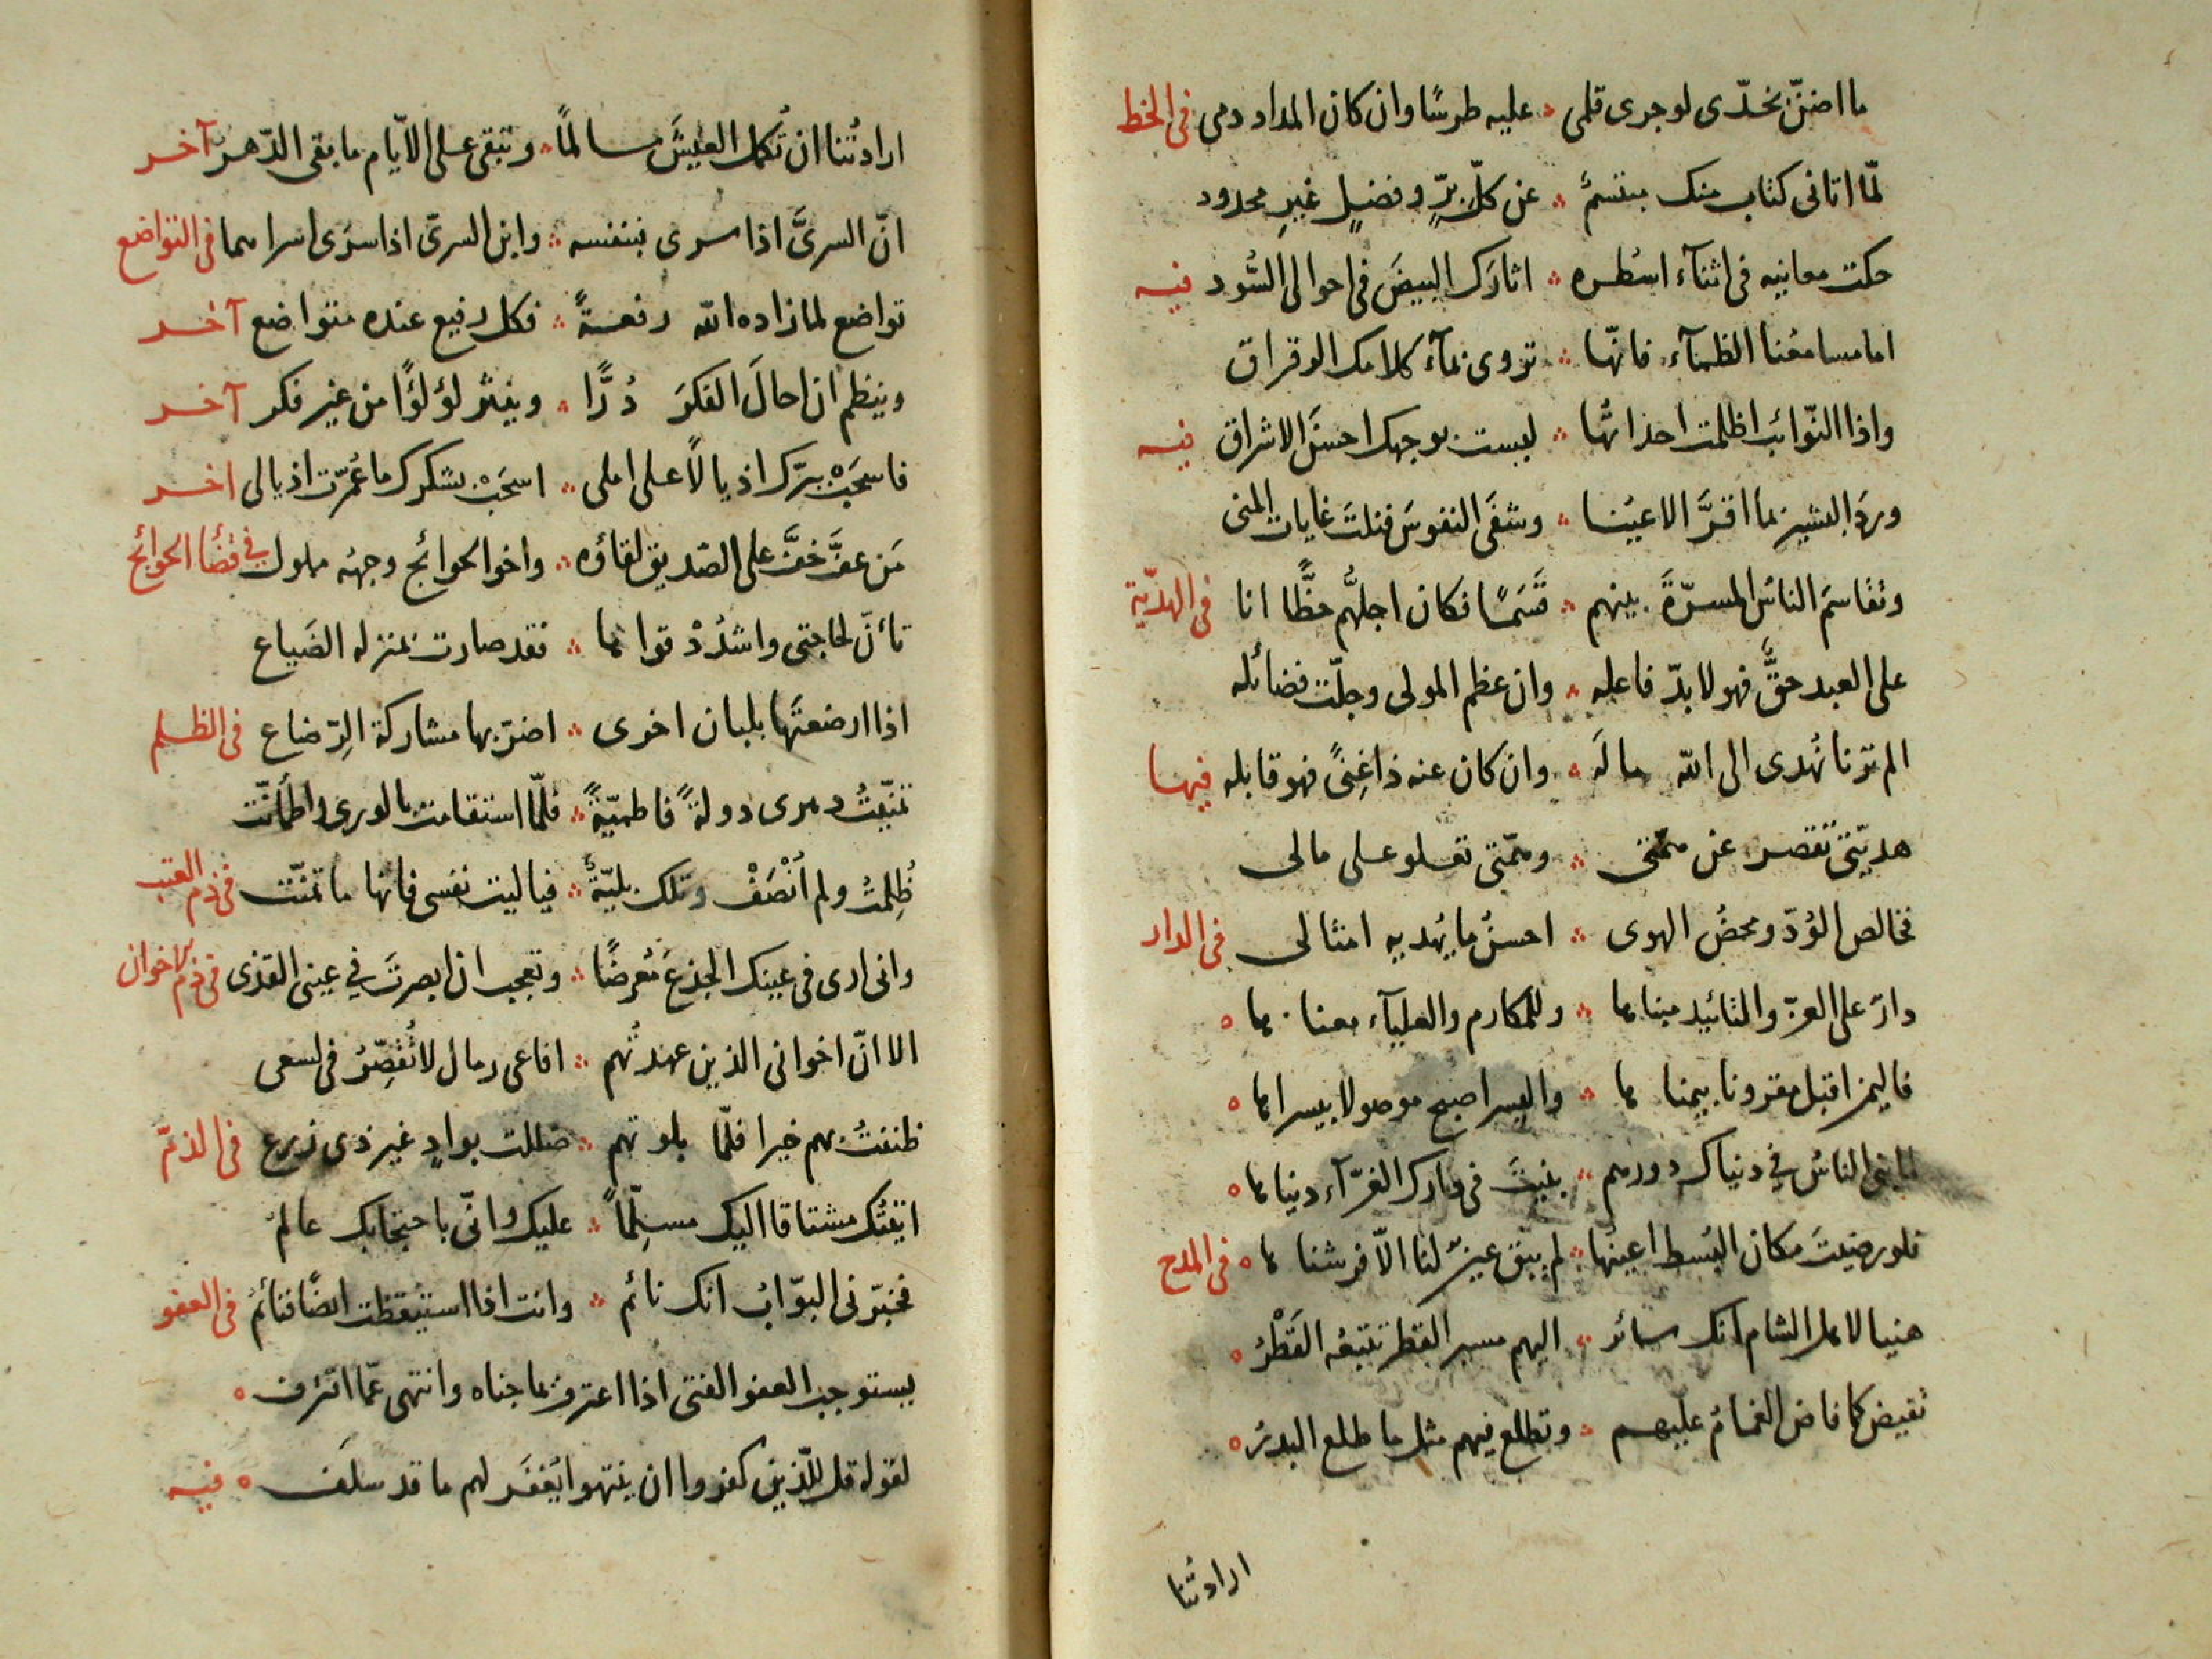 ما اضنّ بخدّى لو جرى قلمى ؞ عليه طرسًا وان كان المداد دمى فى الخط
لمّا اتانى كتاب منك مبتسمٌ ؞ عن كلّ برٍّ وفضيلٍ غيرِ محدود
حكت معانيه فى اثنآء اسُطره ؞ اثارَك البيضَ فى احوالى السُّود فيه
اما مسامعُنا الظمآء فانّها ؞ تروى بمآء كلامك الرقراق
واذا النّوائبُ اظلمت احداثُها ؞ لبست بوجهك احسنَ الاشراق فيه
وردَ البشيرُ بما اقرَّ الاعيُنا ؞ وشفَى النفوسَ فنلتَ غايات المنى
وتقاسمَ الناسُ المسرّةَ بينهم ؞ قَسَمًا فكان اجلَّهم حظًّا انا فى الهديّة
على العبد حقٌّ فهو لا بدّ فاعله ؞ وان عظم المولى وجلّت فضائله
الم ترنا نُهدى الى الله ماله ؞ وان كان عنه ذا غِنىً فهو قابله فيها
هديّتى تقصر عن همّتى ؞ وهمّتى تعلو على مالى
فخالص الوُدّ ومحضُ الهوى ؞ احسنُ ما يُهديه امثالى فى الدار
دارٌ على العزّ والتائيد مبناها ؞ وللمكارم والعليآء مغناها
فاليمن اقبل مقرونا بيمناها ؞ واليسر اصبح موصولا بيسراها
لما بنى الناسُ فى دنياك دورهم ؞ بنيتَ فى دارك الغرّآء دنياها
فلو رضيتَ مكان البُسط اعينَها ؞ لم يبق عينٌ لنا الاّ فرشناها فى المدح
هنيا لاهل الشام انك سائر ؞ اليهم مسير القطر تتبعُه القَطْرُ
تفيض كما فاض الغمامُ عليهم ؞ وتطلع فيهم مثل ما طلع البدرُ
ارادتُنا
ارادتُنا ان تُكمل العيشَ سالمًا ؞ وتبقى على الايّام ما بقى الدّهر آخر
انّ السرىَّ اذا سرى فبنفسه ؞ وابن السرىّ اذا سرَى اسراهما فى التواضع
تواضع لما زاده الله رفعةً ؞ فكل رفيع عنده متواضع آخر
وينظم ان احالَ الفكرَ دُرًّا ؞ وينثر لؤلؤًا من غير فكر آخر
فاسحَبْ ببرّك اذيالاً على املى ؞ اسحَبْ بشكرك ما عُمّرت اذيالى اخر
مَن عفَّ خفَّ على الصّديق لقاؤه ؞ واخو الحوائج وجهُه مملول فى قضأ الحوائج
تأنّ لحاجتى واشدُدْ قواها ؞ فقد صارت بمنزله الضَياع
اذا ارضعتَها بلبان اخرى ؞ اضرّ بها مشاركة الرِّضاع فى الظلم
تمنّيتُ دهرى دولةً فاطميّةً ؞ فلمّا استقامت بالورى واطمأنّت
ظُلِمتُ ولم اُنْصَفْ وتلك بليّةٌ ؞ فياليت نفسى فاتها ما تمنّت فى ذم العتب
وانى ارى فى عينك الجذعَ مُعرضًا ؞ وتعجب ان ابصرتَ فى عينى القذى فى ذم الاخوان
الا انّ اخوانى الذين عهدتُهم ؞ افاعى رمال لا تُقصِّرُ فى لسعى
ظننتُ بهم خيرا فلمّا بلوتهم ؞ ضللت بوادٍ غير ذى زرع فى الذمّ
اتيتُك مشتاقا اليك مسلِّماً ؞ عليك وانّى باحتجابك عالمُ
فخبّرنى البوّابُ انك نائم ؞ وانت اذا استيقظت ايضًا فنائمُ فى العفو
يستوجب العفو الفتى اذا اعترف بما جناه وانتهى عمّا اقترف
لقوله قل للّذين كفروا ان ينتهوا يُغفَر لهم ما قد سلَف فيه